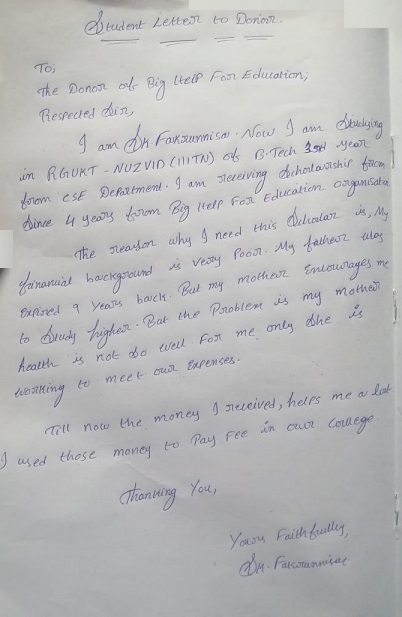 Student Letter to Donor.
To,
The Donor of Big Help For Education,
Respected Sir,
I am Sk. Fakrunnisa. Now I am Studying
in RGUKT - NUZVID (IIITN) of B.Tech 3rd year
from CSE Department. I am receiving Scholarship from
Since 4 years from Big Help For Education organisation
The reason why I need this Scholar is, My
financial background is very poor. My father was
expired 9 years back. But my mother Encourages me
to Study higher. But the Problem is my mother
health is not so well. For me only she is
working to meet our expenses.
Till now the money I received, helps me a lot
I used those money to Pay Fee in our College
Thanking You,
Yours Faithfully,
Sk. Fakrunnisa